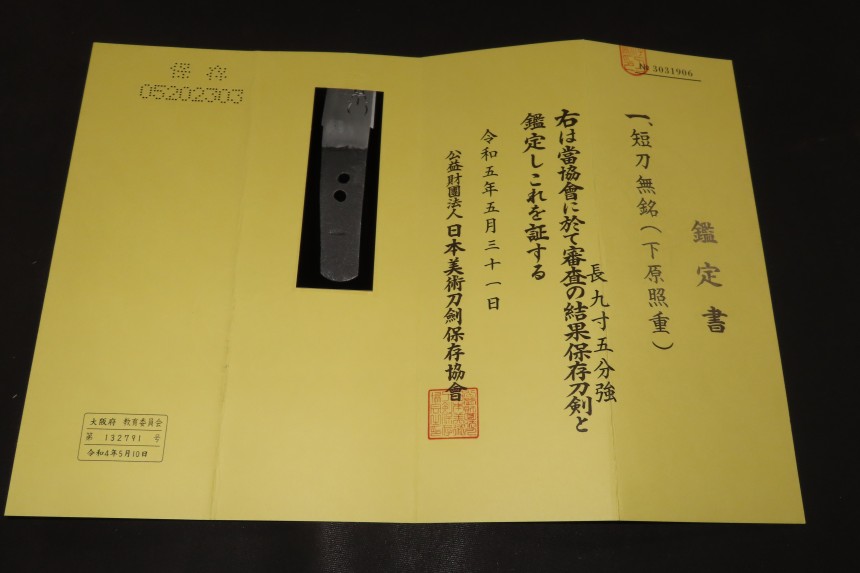 № 3031906
鑑定書
一、短刀無銘(下原照重)
長九寸五分強
右は當協會に於て審査の結果保存刀剣と
鑑定しこれを証する
令和五年五月三十一日
公益財團法人 日本美術刀劍保存協會
保存
05202303
大阪府 教育委員会
第 132791 号
令和4年5月10日